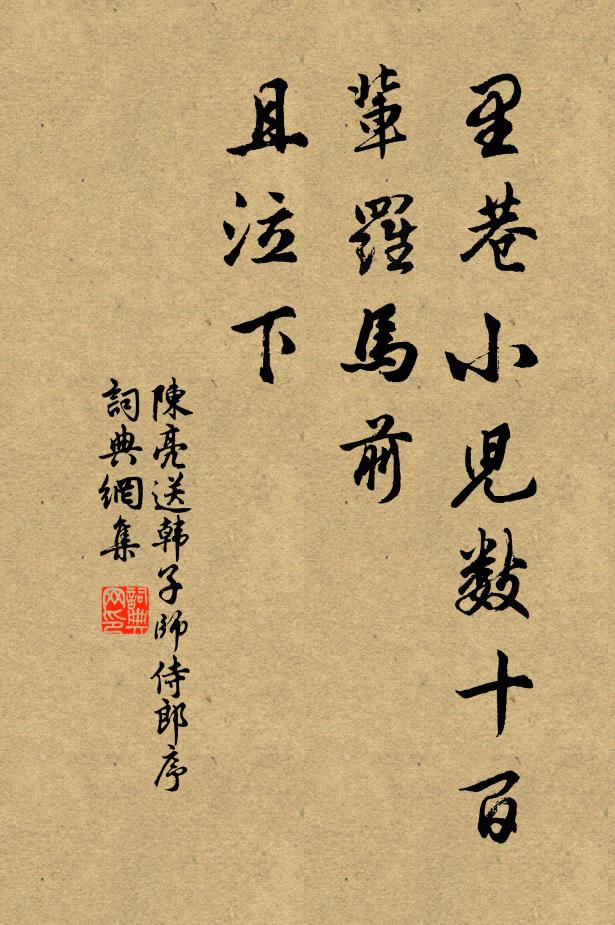 里巷小兒數十百
輩羅馬前
且泣下
陳亮送韩子師侍郎序
詞典網集
詞典
网印